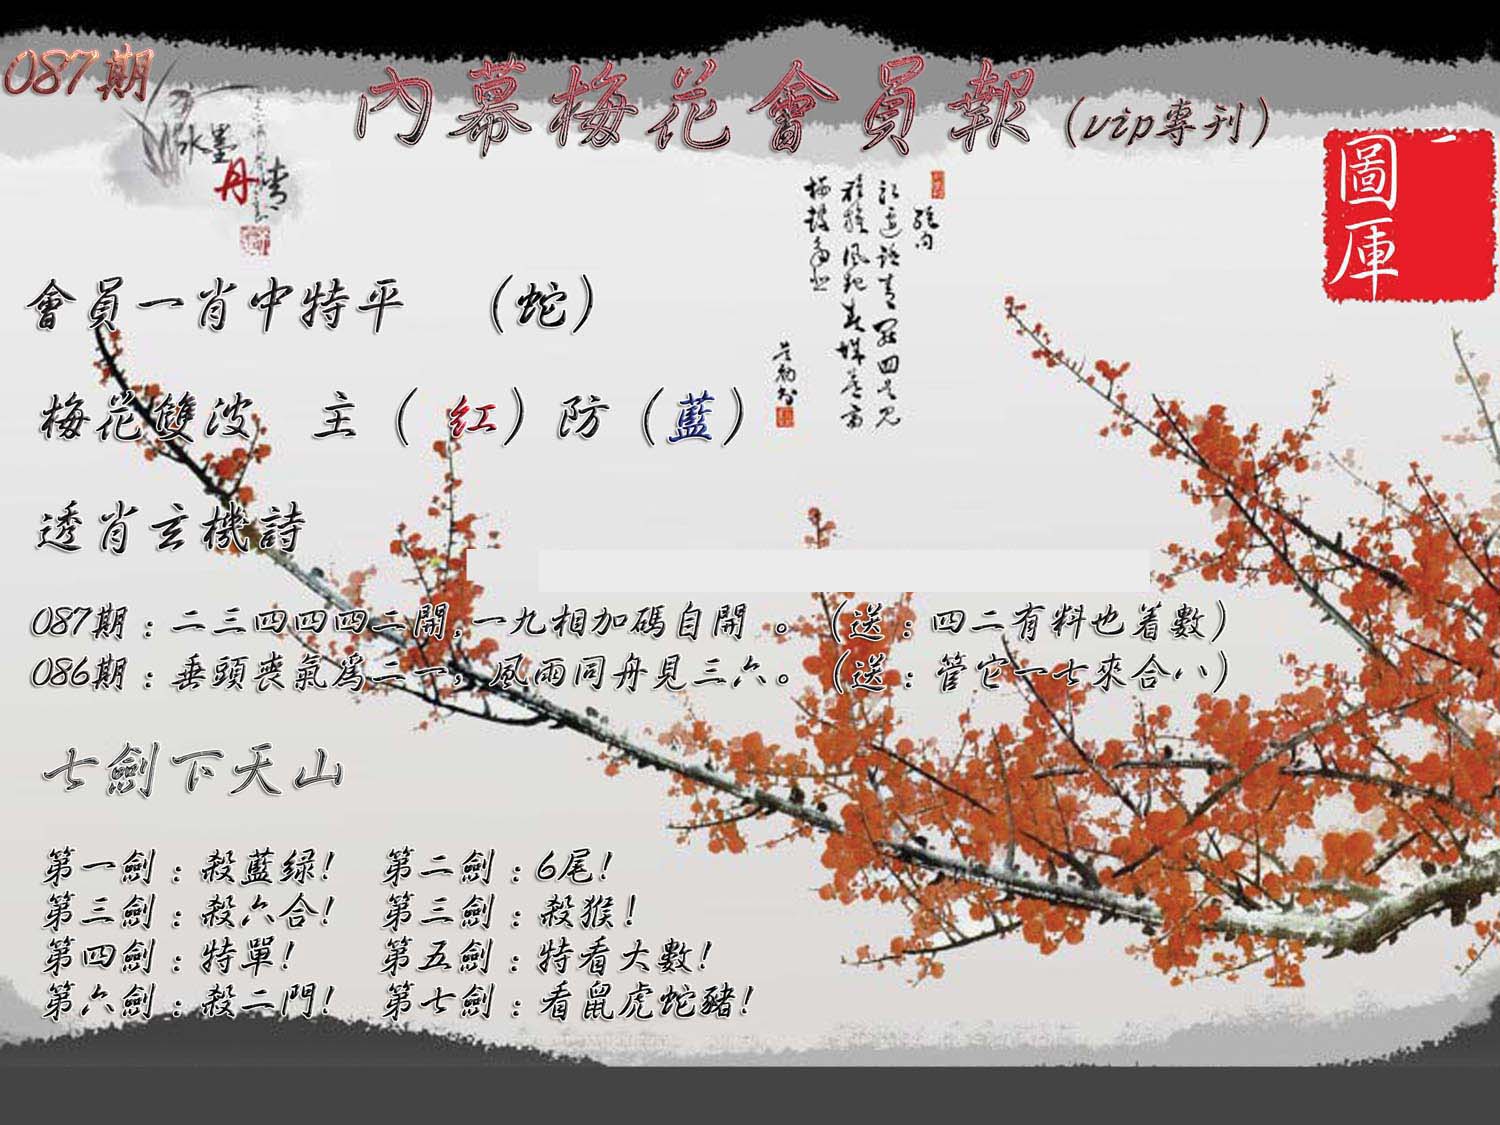 087期
內幕梅花會員報(vip專刊)
水墨
丹青
一
圖庫
會員一肖中特平 (蛇)
梅花雙波 主(紅)防(藍)
透肖玄機詩
087期:二三四四四二開,一九相加碼自開。(送:四二有料也着數)
086期:垂頭喪氣爲二一,風雨同舟見三六。(送:管它一七來合八)
七劍下天山
第一劍:殺藍绿! 第二劍:6尾!
第三劍:殺六合! 第三劍:殺猴!
第四劍:特單! 第五劍:特看大數!
第六劍:殺二門! 第七劍:看鼠虎蛇豬!